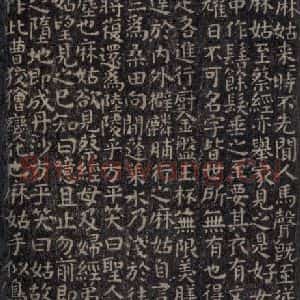 麻姑來時不先聞人馬聲既至從
麻姑至蔡經亦舉家見之是好
中作髻餘髮垂之至要其衣有
耀日不可名字皆世所無有也得
定各進行廚金盤玉杯無限美膳
達於內外擗麟脯行之麻姑自言
三為桑田向間蓬萊水乃淺於往
將復還為陸陵乎方平笑曰聖人
塵也麻姑欲見蔡經母及婦經弟
姑望見之已知曰噫且止勿前即
之墮地即成丹沙方平笑曰姑故
作此曹狡獪變化也麻姑手似鳥